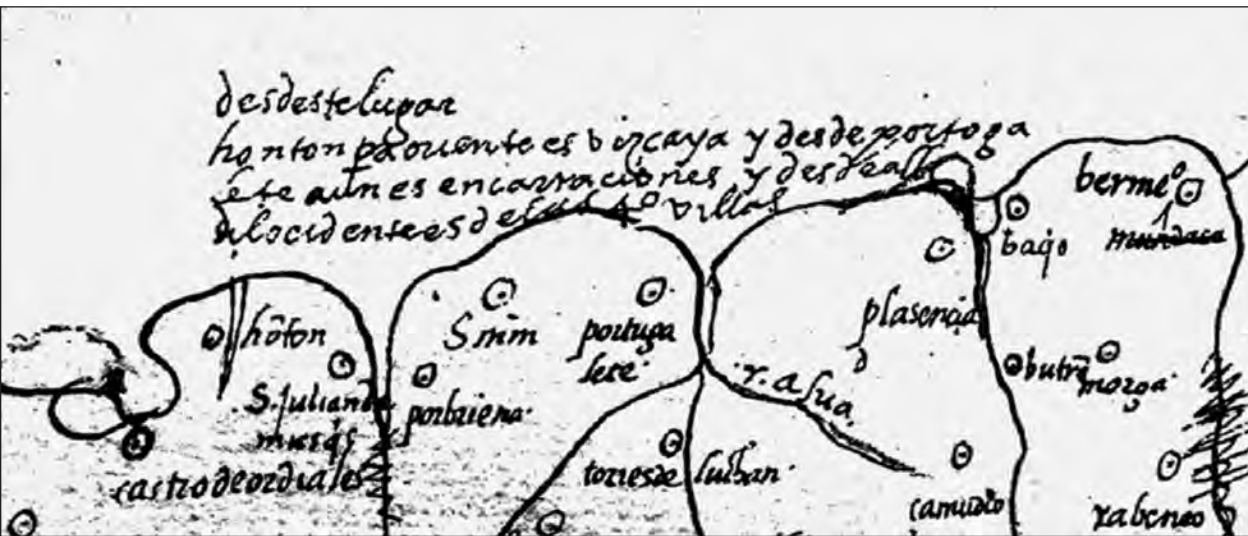 desdestelugar
honton pa oriente es bizcaya y desde portoga
lete aun es encartaciones y desde alli
al ocidente es de las 4º villas
bermeº
baqio
mundaca
hōton
S mĩn
portuga
lete
plasencia
S. Julian d
musqs
porbriena
r. asua
butrō
morga
castro de ordiales
torres de luchan
camudio
rabeneo